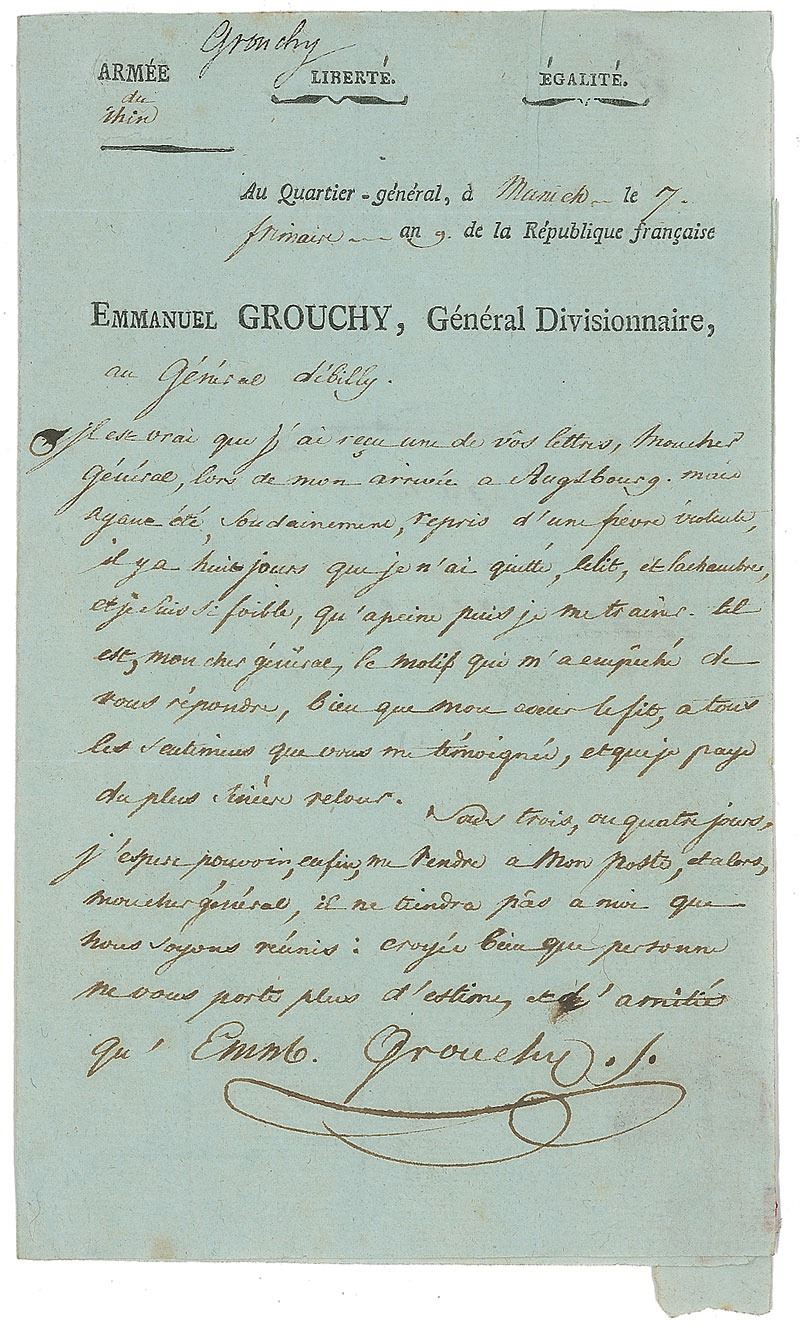 Grouchy
ARMÉE
du
Rhin
LIBERTÉ.
ÉGALITÉ.
Au Quartier-général, à Munich le 7
frimaire an 9. de la République française
EMMANUEL GROUCHY, Général Divisionnaire,
au Général débilly.
il est vrai que j'ai reçu une de vôs lettres, moucher
Général, lors de mon arrivée a Augsbourg. mais
ayant été, Soudainement, repris d'une fievre violente,
il y a huit jours que je n'ai quitté, le lit, et la chambre,
et je suis si foible, qu'apeine puis je me trainer. tel
est, mon cher général, le motif qui m'a empêché de
vous répondre, bien que mon coeur le fit, a tous
les sentimens que vous me témoignée, et que je paye
du plus sincère retour.
Sous trois, ou quatre jours,
j'espere pouvoir, enfin, me rendre a mon poste, et alors,
mon cher général, il ne tiendra pâs a moi que
nous soyons réunis : croyée bien que personne
ne vous porte plus d'estime, et d'amitié
qu' Emm. Grouchy